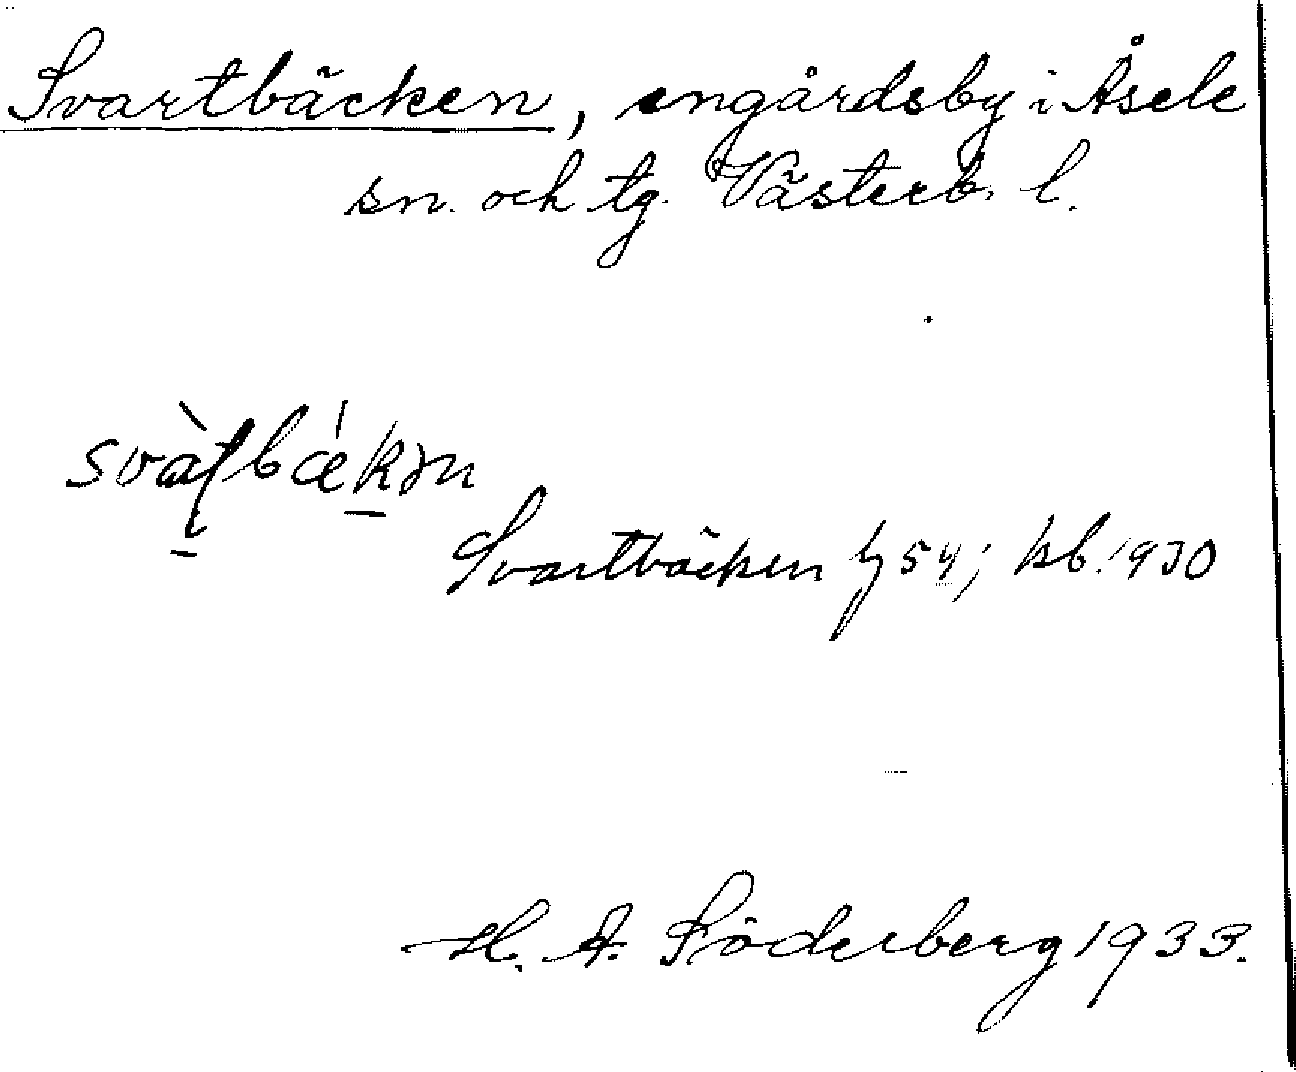 Svartbäcken, engårdsby i Åsele
sn. och tg. Västerb. l.
Svartbäcken 54; kb. 1930
H. A. Söderberg 1933.